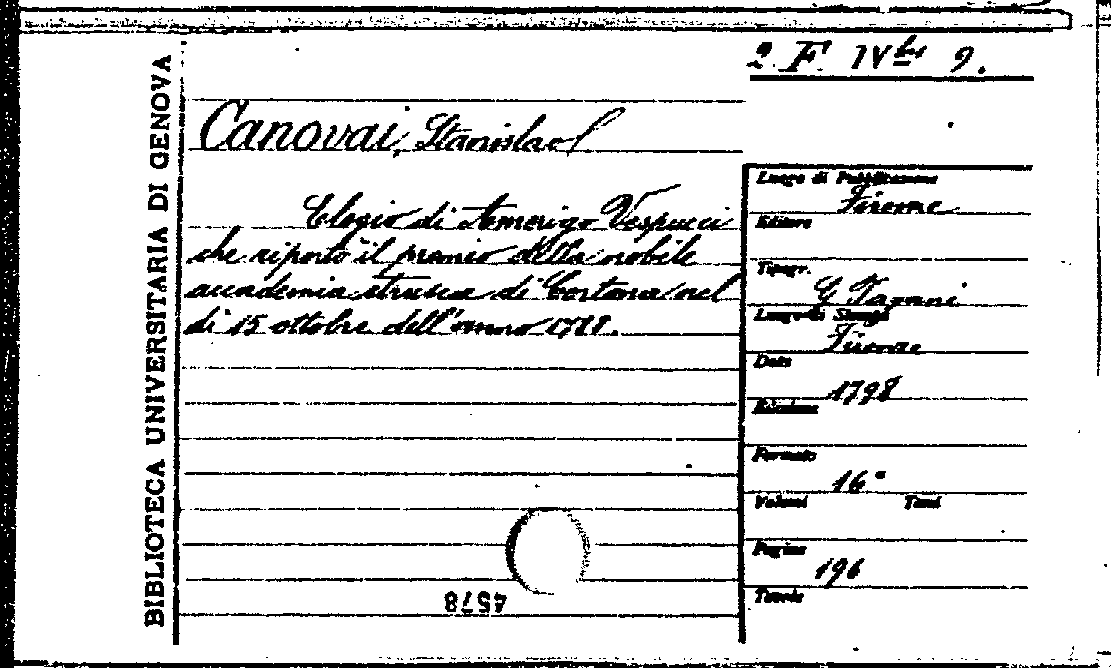 2 F IV bis 9.
BIBLIOTECA UNIVERSITARIA DI GENOVA
Canovai, Stanislao
Elogio di Amerigo Vespucci
che riportò il premio della nobile
accademia etrusca di Cortona nel
di 15 ottobre dell'anno 1788.
Luogo di Pubblicazione
Firenze
Editore
Tipogr.
G. Pagani
Luogo di Stampa
Firenze
Data
1798
Edizione
Formato
16°
Volumi Tomi
Pagine
196
Tavole
4578